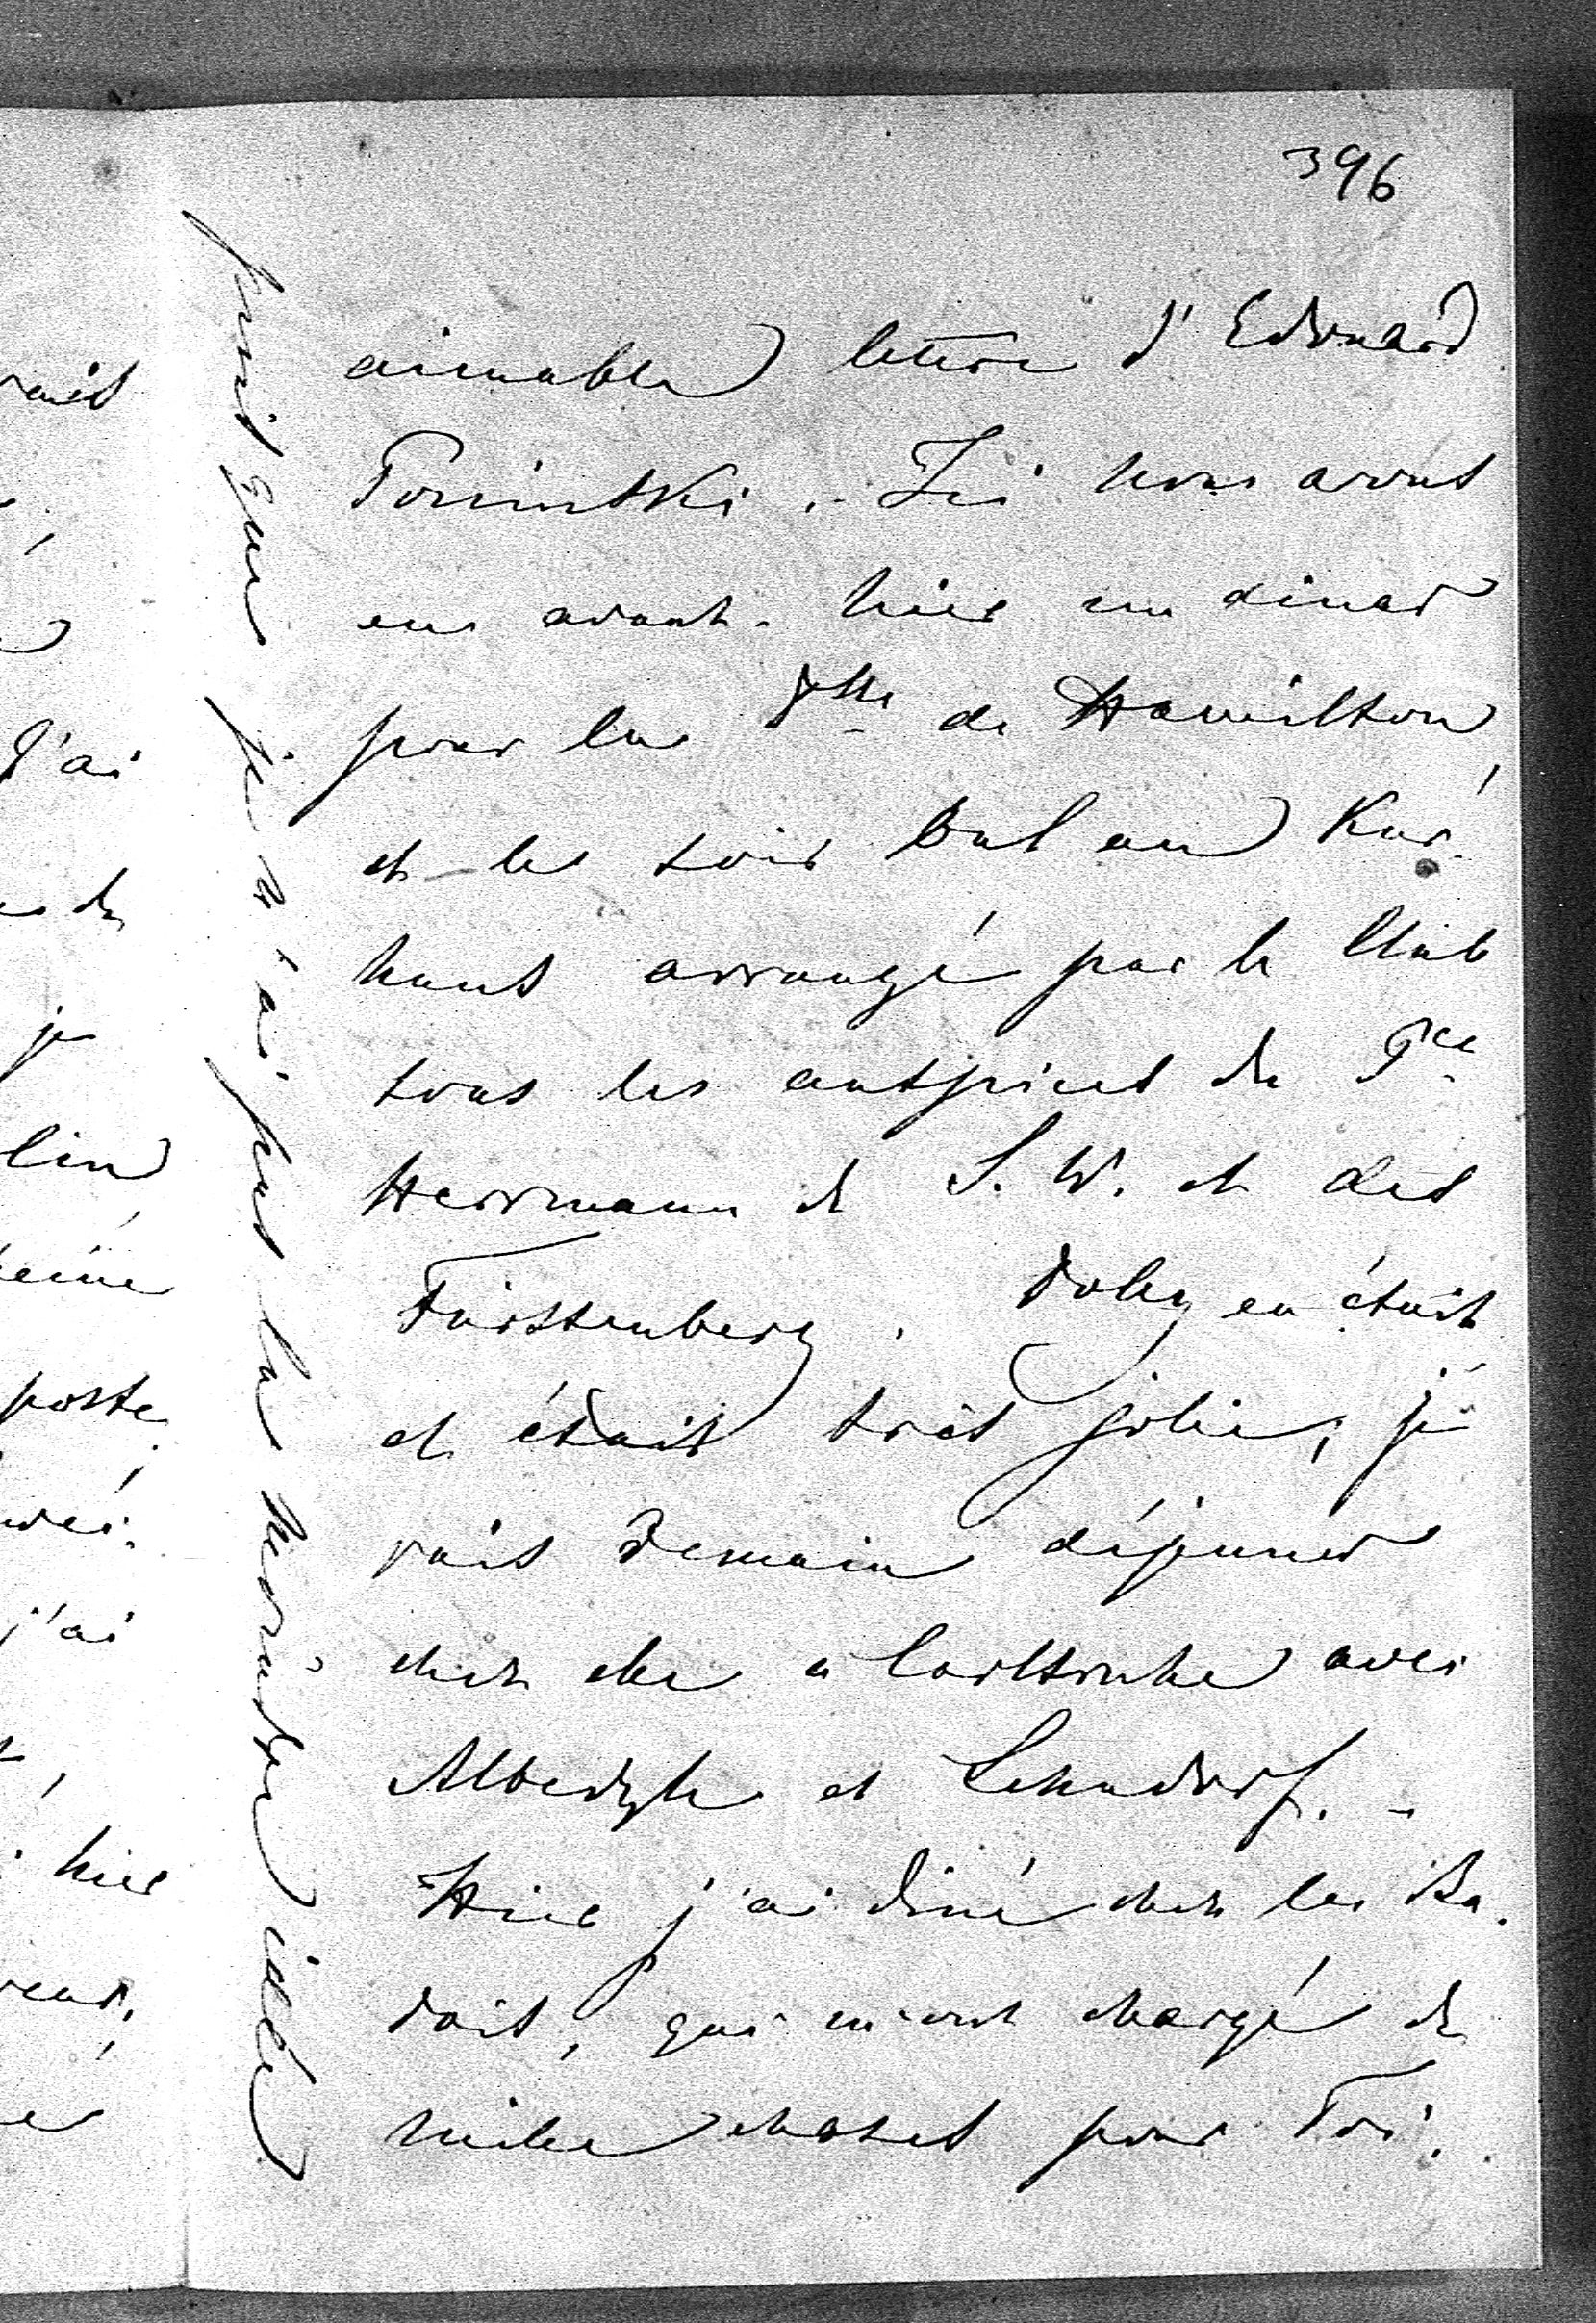 396
aimable lettre d'Edouard
Poninski. - Ici nous avons
eu avant-hier un diner
pour la Dsse de Hamilton,
et le soir bal au Kur-
haus arrangé par le Club
sous les auspices du Pce
Herrmann de S. W. et des
Fürstenberg. Dolly en était
et était très jolie, je
vais demain déjeuner
chez elle a Carlsruhe avec
Albedyhl et Lehndorf. -
Hier j'ai diné chez les Ba-
dois, qui m'ont chargé de
mille choses pour Toi.
puisque je n'ai pas la moindre idée
vait
J'ai
du
je
lin
poste,
j'ai
hier